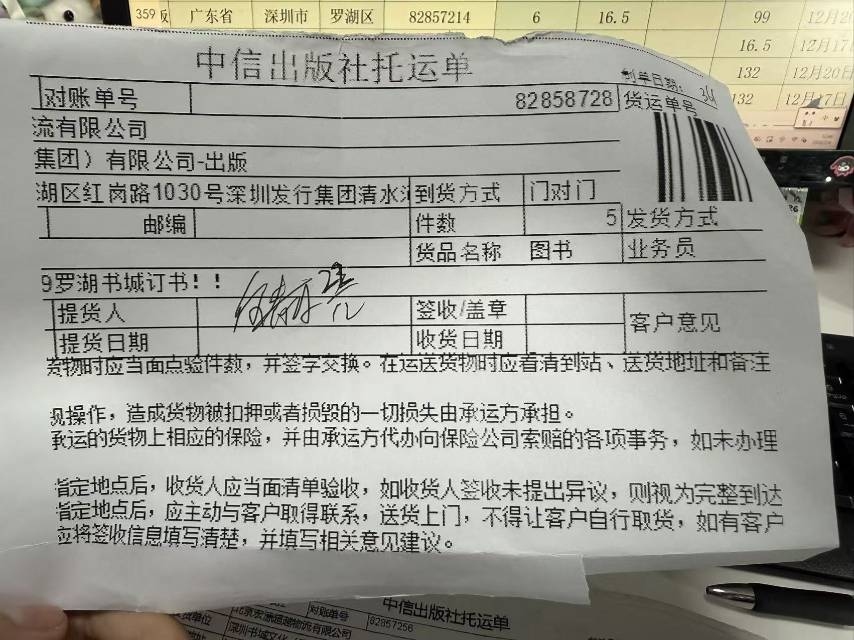 359 广东省 深圳市 罗湖区 82857214 6 16.5 99
16.5 12月17日
132 12月20日
132 12月17日
中信出版社托运单
制单日期:
对账单号 82858728 货运单号
流有限公司
集团）有限公司-出版
湖区红岗路1030号深圳发行集团清水 到货方式 门对门
邮编 件数 5 发货方式
货品名称 图书 业务员
9罗湖书城订书！！
提货人 签收/盖章 客户意见
提货日期 收货日期
货物时应当面点验件数，并签字交换。在运送货物时应看清到站、送货地址和备注
见操作，造成货物被扣押或者损毁的一切损失由承运方承担。
承运的货物上相应的保险，并由承运方代办向保险公司索赔的各项事务，如未办理
指定地点后，收货人应当面清单验收，如收货人签收未提出异议，则视为完整到达
指定地点后，应主动与客户取得联系，送货上门，不得让客户自行取货，如有客户
应将签收信息填写清楚，并填写相关意见建议。
中信出版社托运单
对账单号 82857256